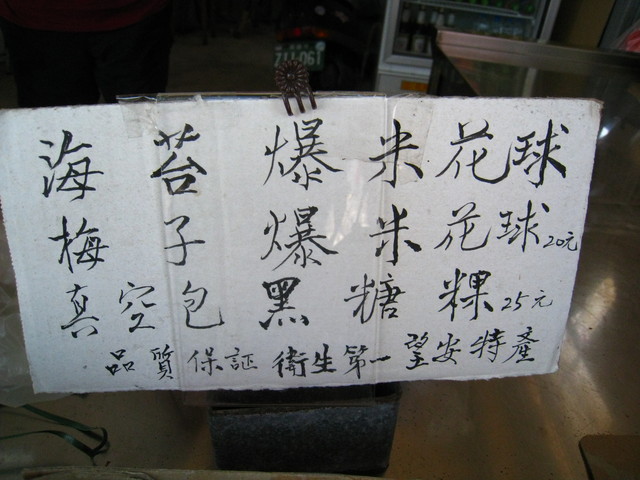 海苔爆米花球
梅子爆米花球20元
真空包黑糖粿25元
品質保証 衛生第一 望安特產